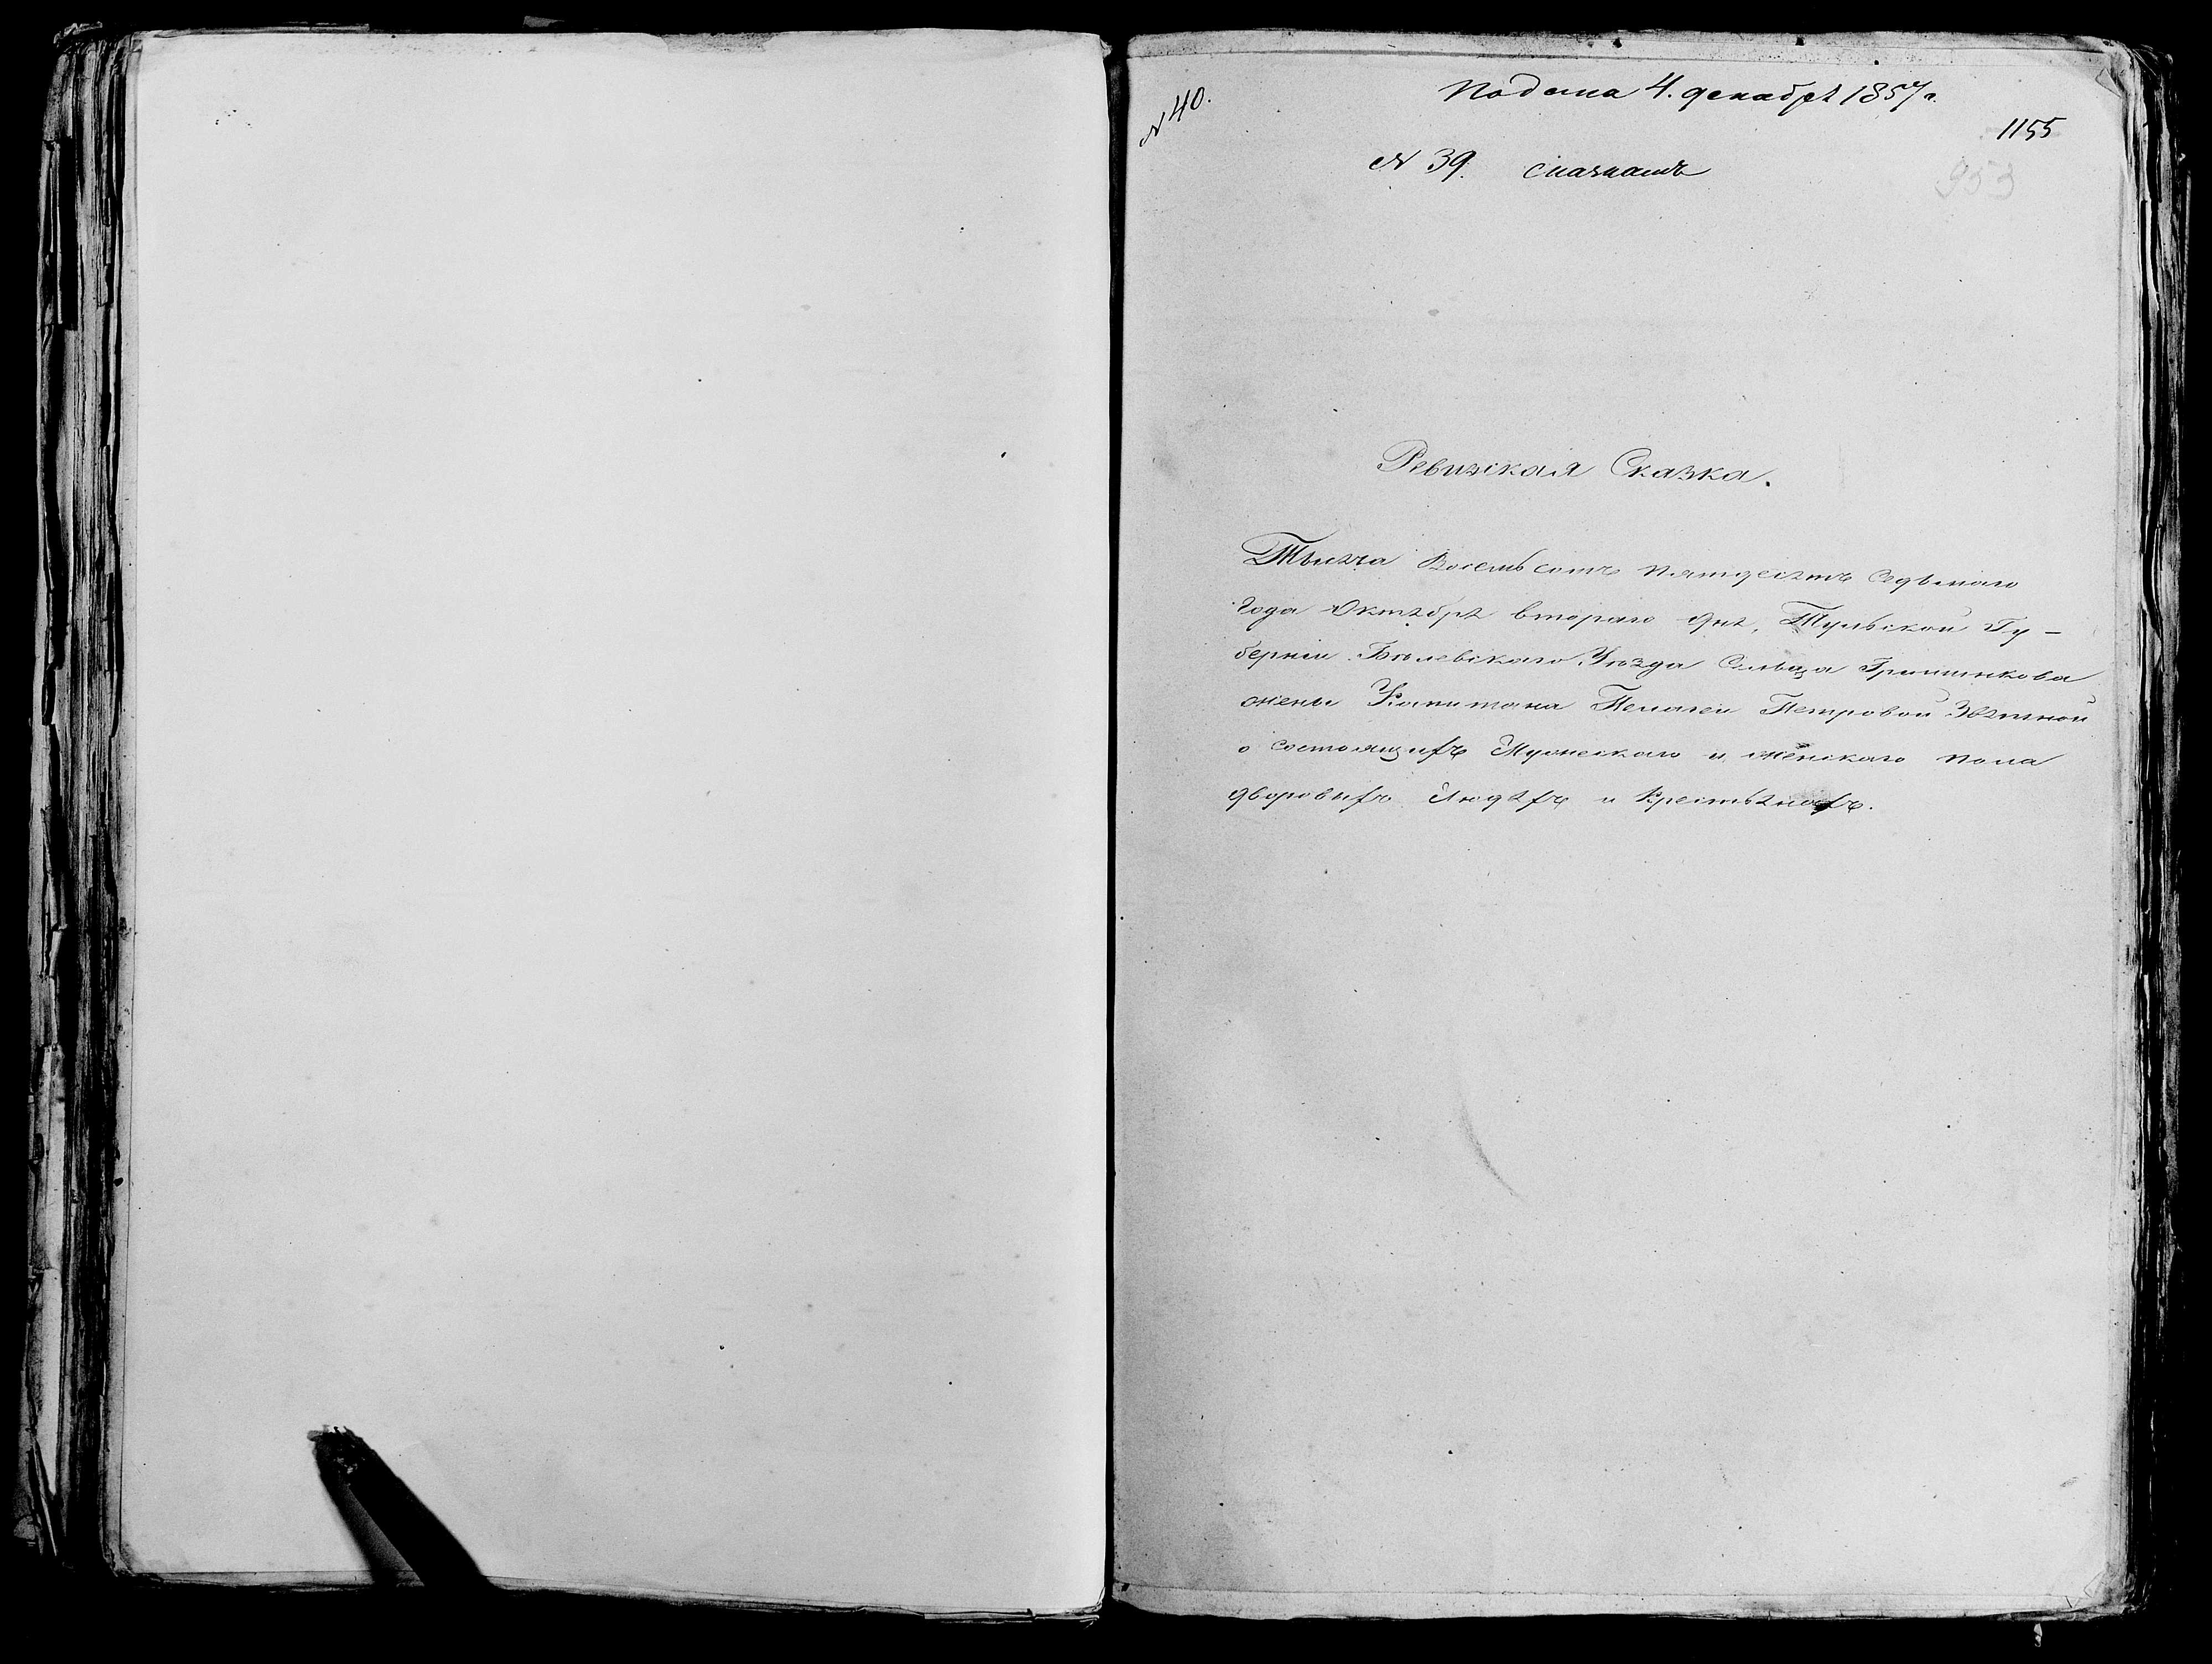 N 40.
Подана 4. декабря 1857 г.
1155
N 39. сказкамъ
953
Ревизская Сказка.
Тысяча Восемьсотъ пятдесятъ Седьмаго
Года Октября втораго дня, Тульской Гу-
берніи Бѣлевскаго Уѣзда Сельца
жены Капитана Пелагеи Петровой
о состоящихъ Мужескаго и женскаго пола
дворовыхъ Людяхъ и Крестьянахъ.